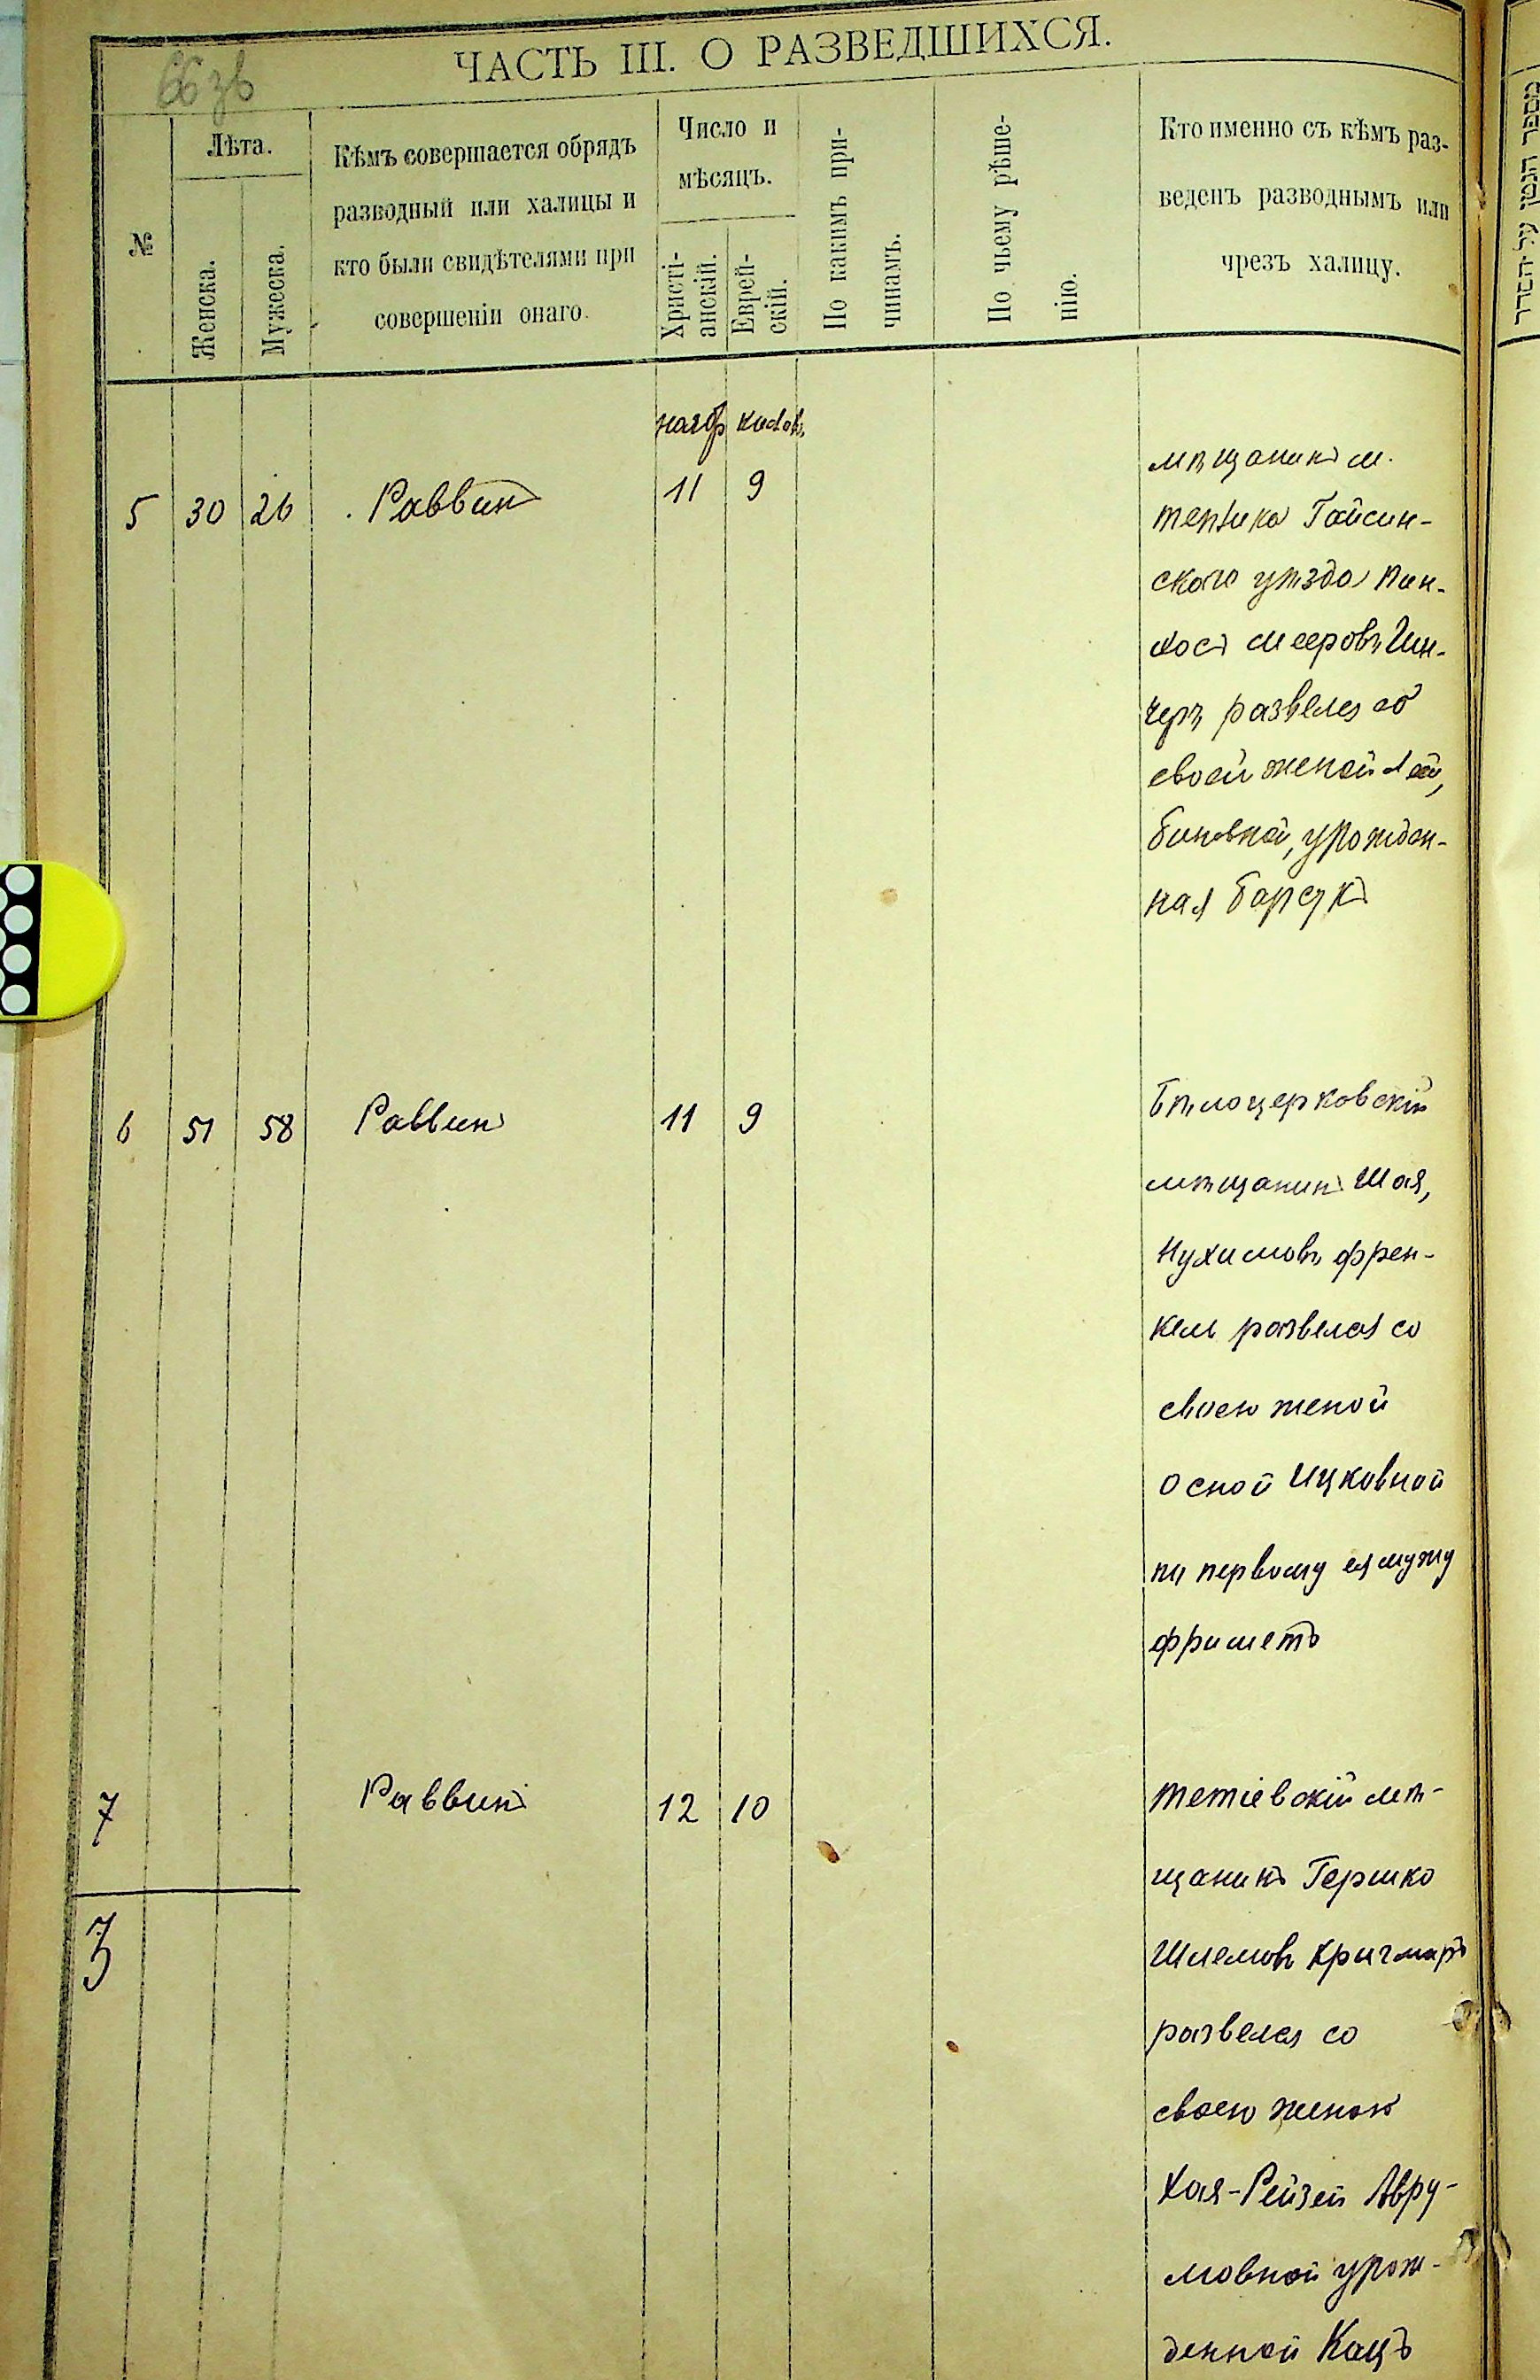 ЧАСТЬ III. О РАЗВЕДШИХСЯ.
66 зв
№
Лѣта.
Женска.
Мужеска.
Кѣмъ совершается обрядъ
разводный или халицы и
кто были свидѣтелями при
совершеніи онаго.
Число и
мѣсяцъ.
Христі-
анскій.
Еврей-
скій.
По какимъ при-
чинамъ.
По чьему рѣше-
нію.
Кто именно съ кѣмъ раз-
веденъ разводнымъ или
чрезъ халицу.
ноябр кислев
5 30 26 Раввинъ 11 9
мѣщанинъ м.
Теплика Гайсин-
скаго уѣзда Пин-
хосъ Мееровъ
развелся со
своей женой Леей,
урожден-
ная Барскъ
6 51 58 Раввинъ 11 9
Бѣлоцерковскій
мѣщанинъ Шая,
Нухимовъ Френ-
кель развелся со
своею женой
Осной Ицковной
по первому ея мужу
Фриметъ
7 Раввинъ 12 10
3
Тетіевскій мѣ-
щанинъ Гершко
Шлемовъ Кригмаръ
развелся со
своею женою
Хая-Рейзей Авру-
мовной урож-
денной Кацъ
מספר הגטין על הסדר